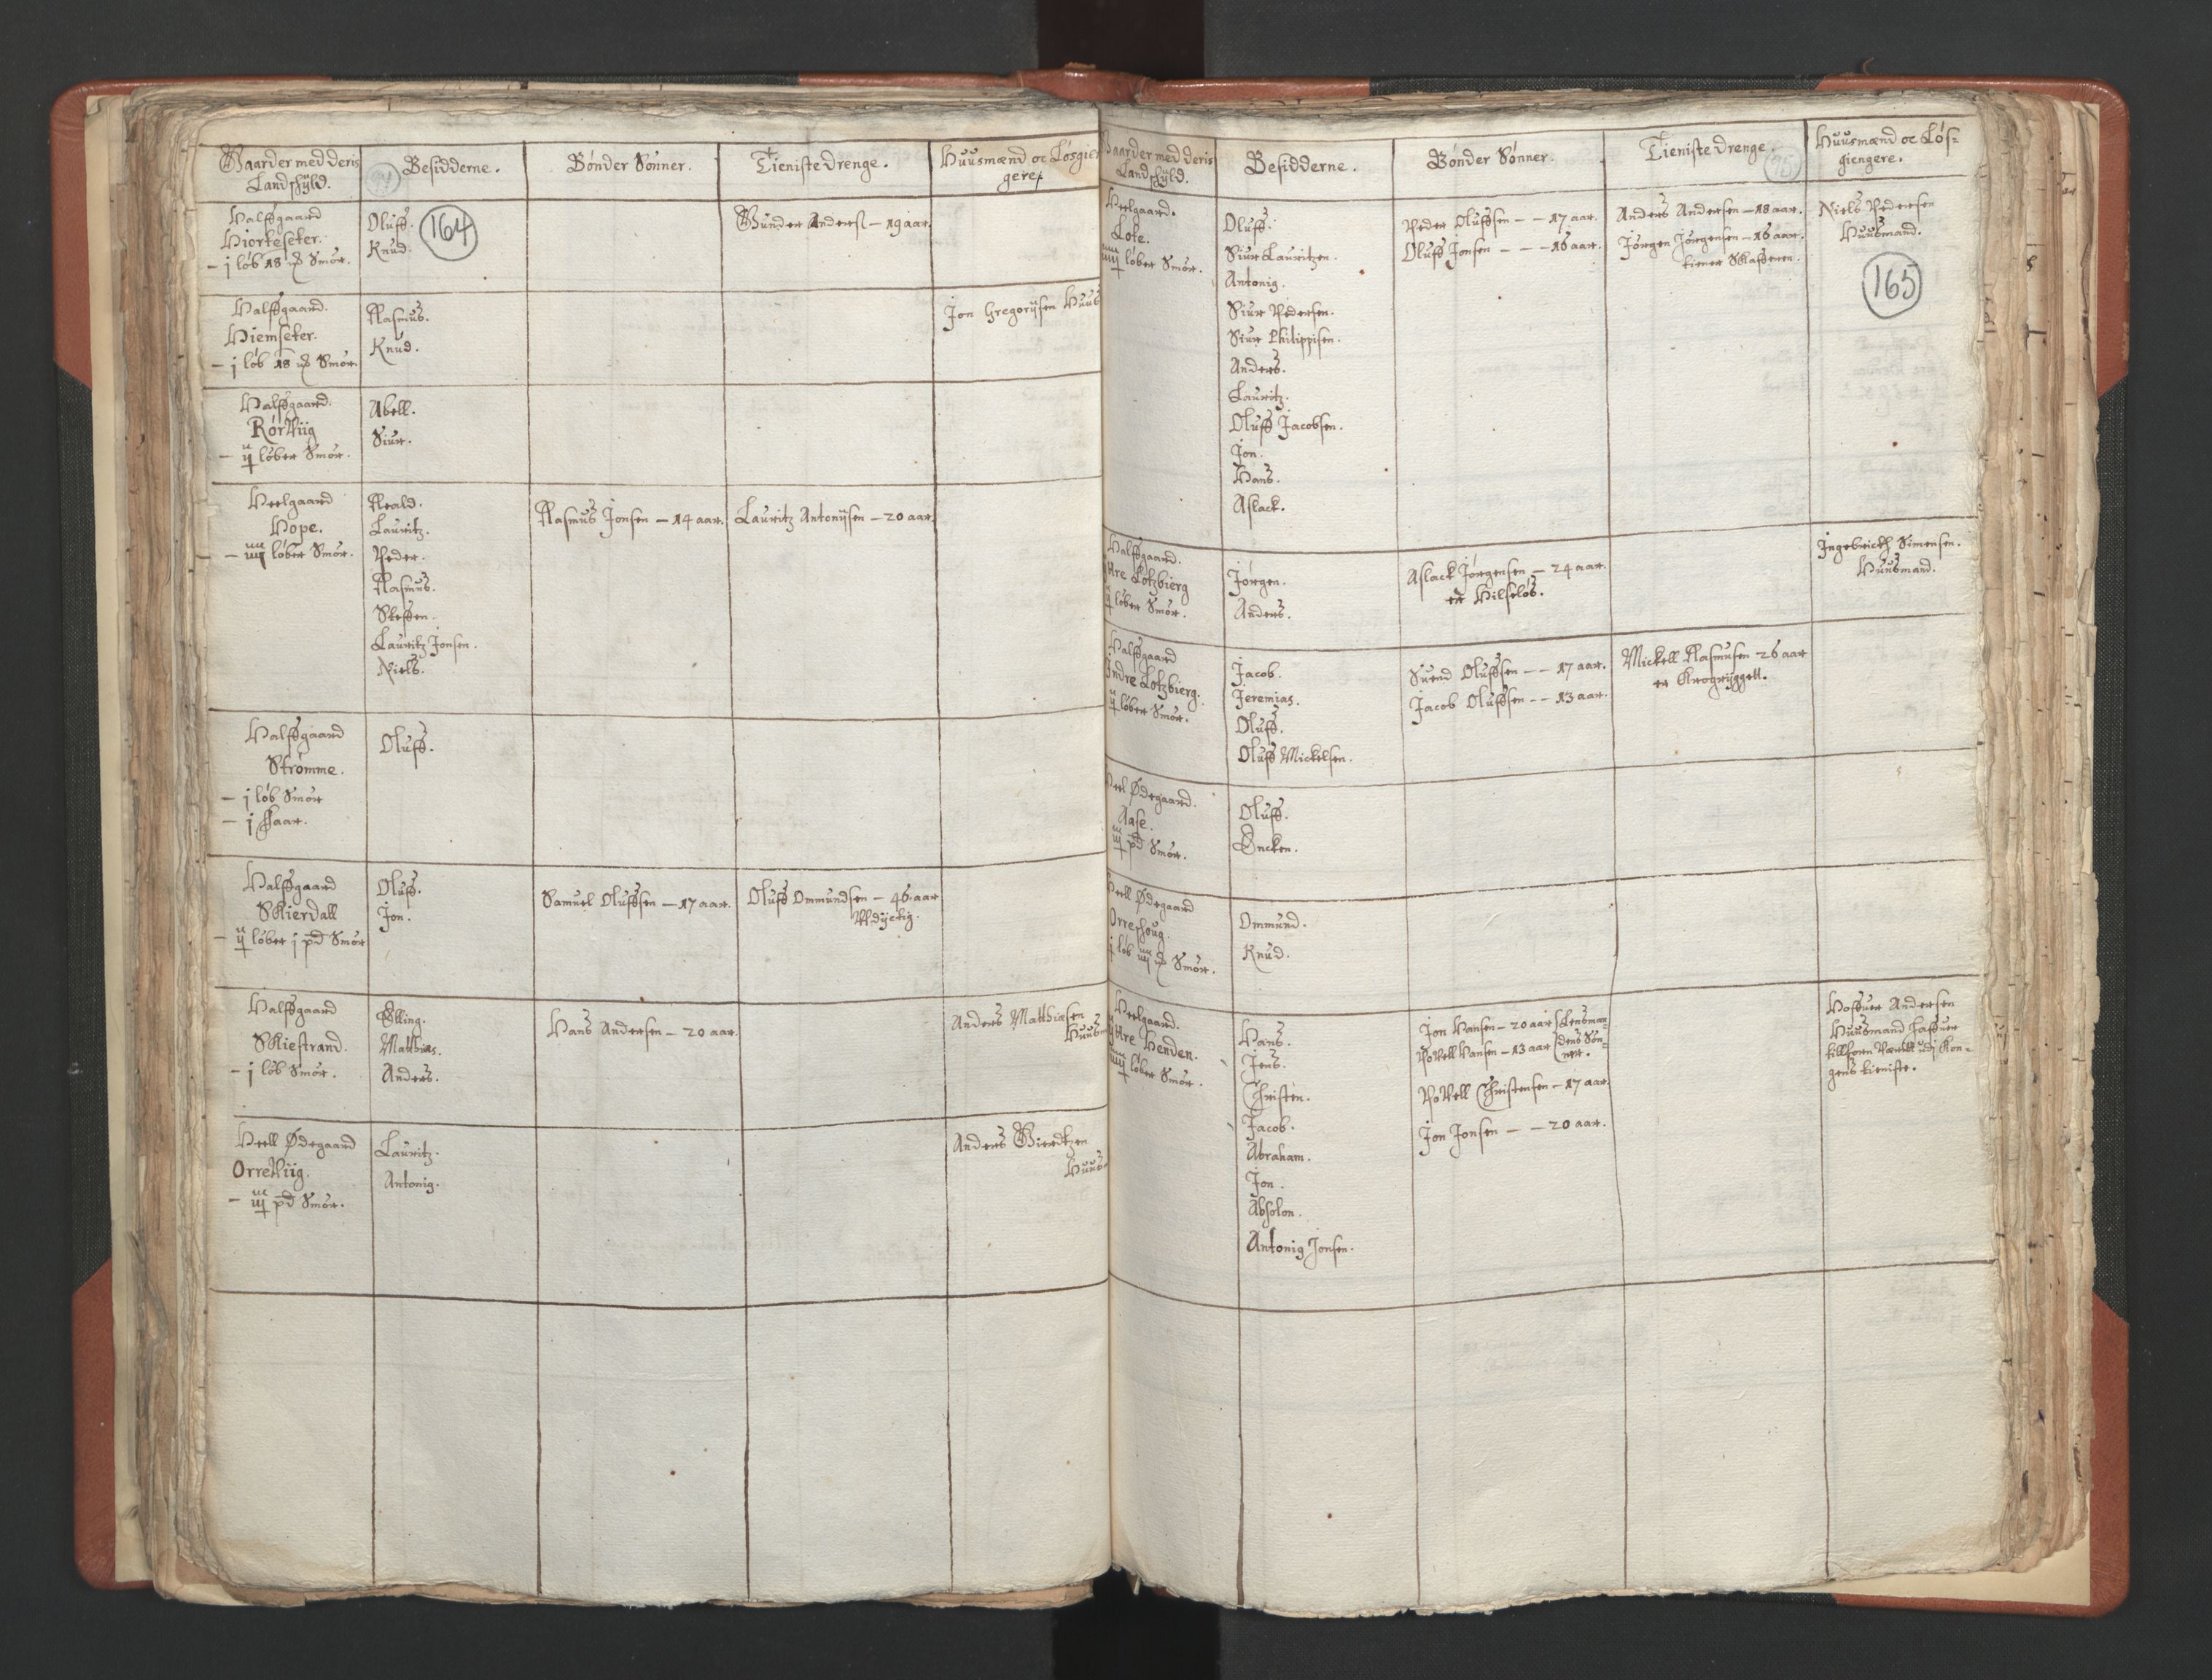 Gaarder med deris
Landschÿld.
Besidderne.
Bønder Sønner.
Tieniste drenge.
Huusmænd oc Løsgien
gere.
164
Halffgaard
Hiorteseter.
- j løb 18 ₥ Smør.
Oluff.
Knud.
Gunder Anders: - 19 aar.
Halffgaard.
Hiemseter.
- j løb 18 ₥ Smør.
Rasmus.
Knud.
Jon Gregorijsen Huus
Halffgaard.
Rørviig
- ij løber Smør.
Abell.
Siur.
Heelgaard
Hope.
- iiij løber Smør.
Reald.
Lauritz.
Peder.
Rasmus.
Steffen.
Lauritz Jonsen.
Niels.
Rasmus Jonsen - 14 aar.
Lauritz Antonijsen - 20 aar.
Halffgaard
Strømme.
- j løb Smør
- j Faar.
Oluff.
Halffgaard
Skierdall
- ij løber j pd Smør
Oluff.
Jon.
Samuel Oluffsen - 17 aar.
Oluff Ommundsen - 46 aar
Vdÿctig.
Halffgaard
Skiestrand.
- j løb Smør.
Elling.
Matthias.
Anders.
Hans Andersen - 20 aar.
Anders Matthiasen
Huusm
Heell Ødegaard
Orreviig.
- iij pd Smør.
Lauritz.
Antonig.
Anders Gierdtzen
Huus
Gaarder med deris
Landschÿld.
Besidderne.
Bønder Sønner.
Tieniste drenge.
Huusmænd oc Løs-
giengere.
165
Heelgaard.
Lote.
iiij løber Smør.
Oluff.
Siur Lauritzen.
Antonig.
Siur Pedersen.
Siur Philippsen.
Anders.
Lauritz.
Oluff Jacobsen.
Jon.
Hans.
Aslack.
Peder Oluffsen - - 17 aar.
Oluff Jonsen - - - 16 aar.
Anders Andersen - 18 aar.
Jørgen Jørgensen - 16 aar.
tiener Skafferen.
Niels Pedersen
Huusmand.
Halffgaard.
Ytre Lotzbierg
ij løber Smør.
Jørgen.
Anders.
Aslack Jørgensen - 24 aar.
er Hilseløs.
Ingebrict Simensen.
Huusmand.
Halffgaard
Indre Lotzbierg.
ij løber Smør.
Jacob.
Jeremias.
Oluff.
Oluff Mickelsen.
Suend Oluffsen - - 17 aar.
Jacob Oluffsen - - 13 aar.
Mickell Rasmusen 26 aar
er Krogrÿggett.
Heel Ødegaard.
Aase.
iij pd Smør.
Oluff.
Encken.
Heell Ødegaard
Orreshoug.
j løb iij ₥ Smør.
Ommund.
Knud.
Heelgaard.
Ytre Henden.
iiij løber Smør.
Hans.
Jens.
Christen.
Jacob.
Abraham.
Jon.
Absolon.
Antonig Jonsen.
Jon Hansen - 20 aar Lensman-
Povell Hansen - 13 aar dens Søn-
ner.
Povell Christensen - 17 aar.
Jon Jonsen - - 20 aar.
Hoffuer Andersen
Huusmand haffuer
tillforn Værett udj Kon-
gens tieniste.